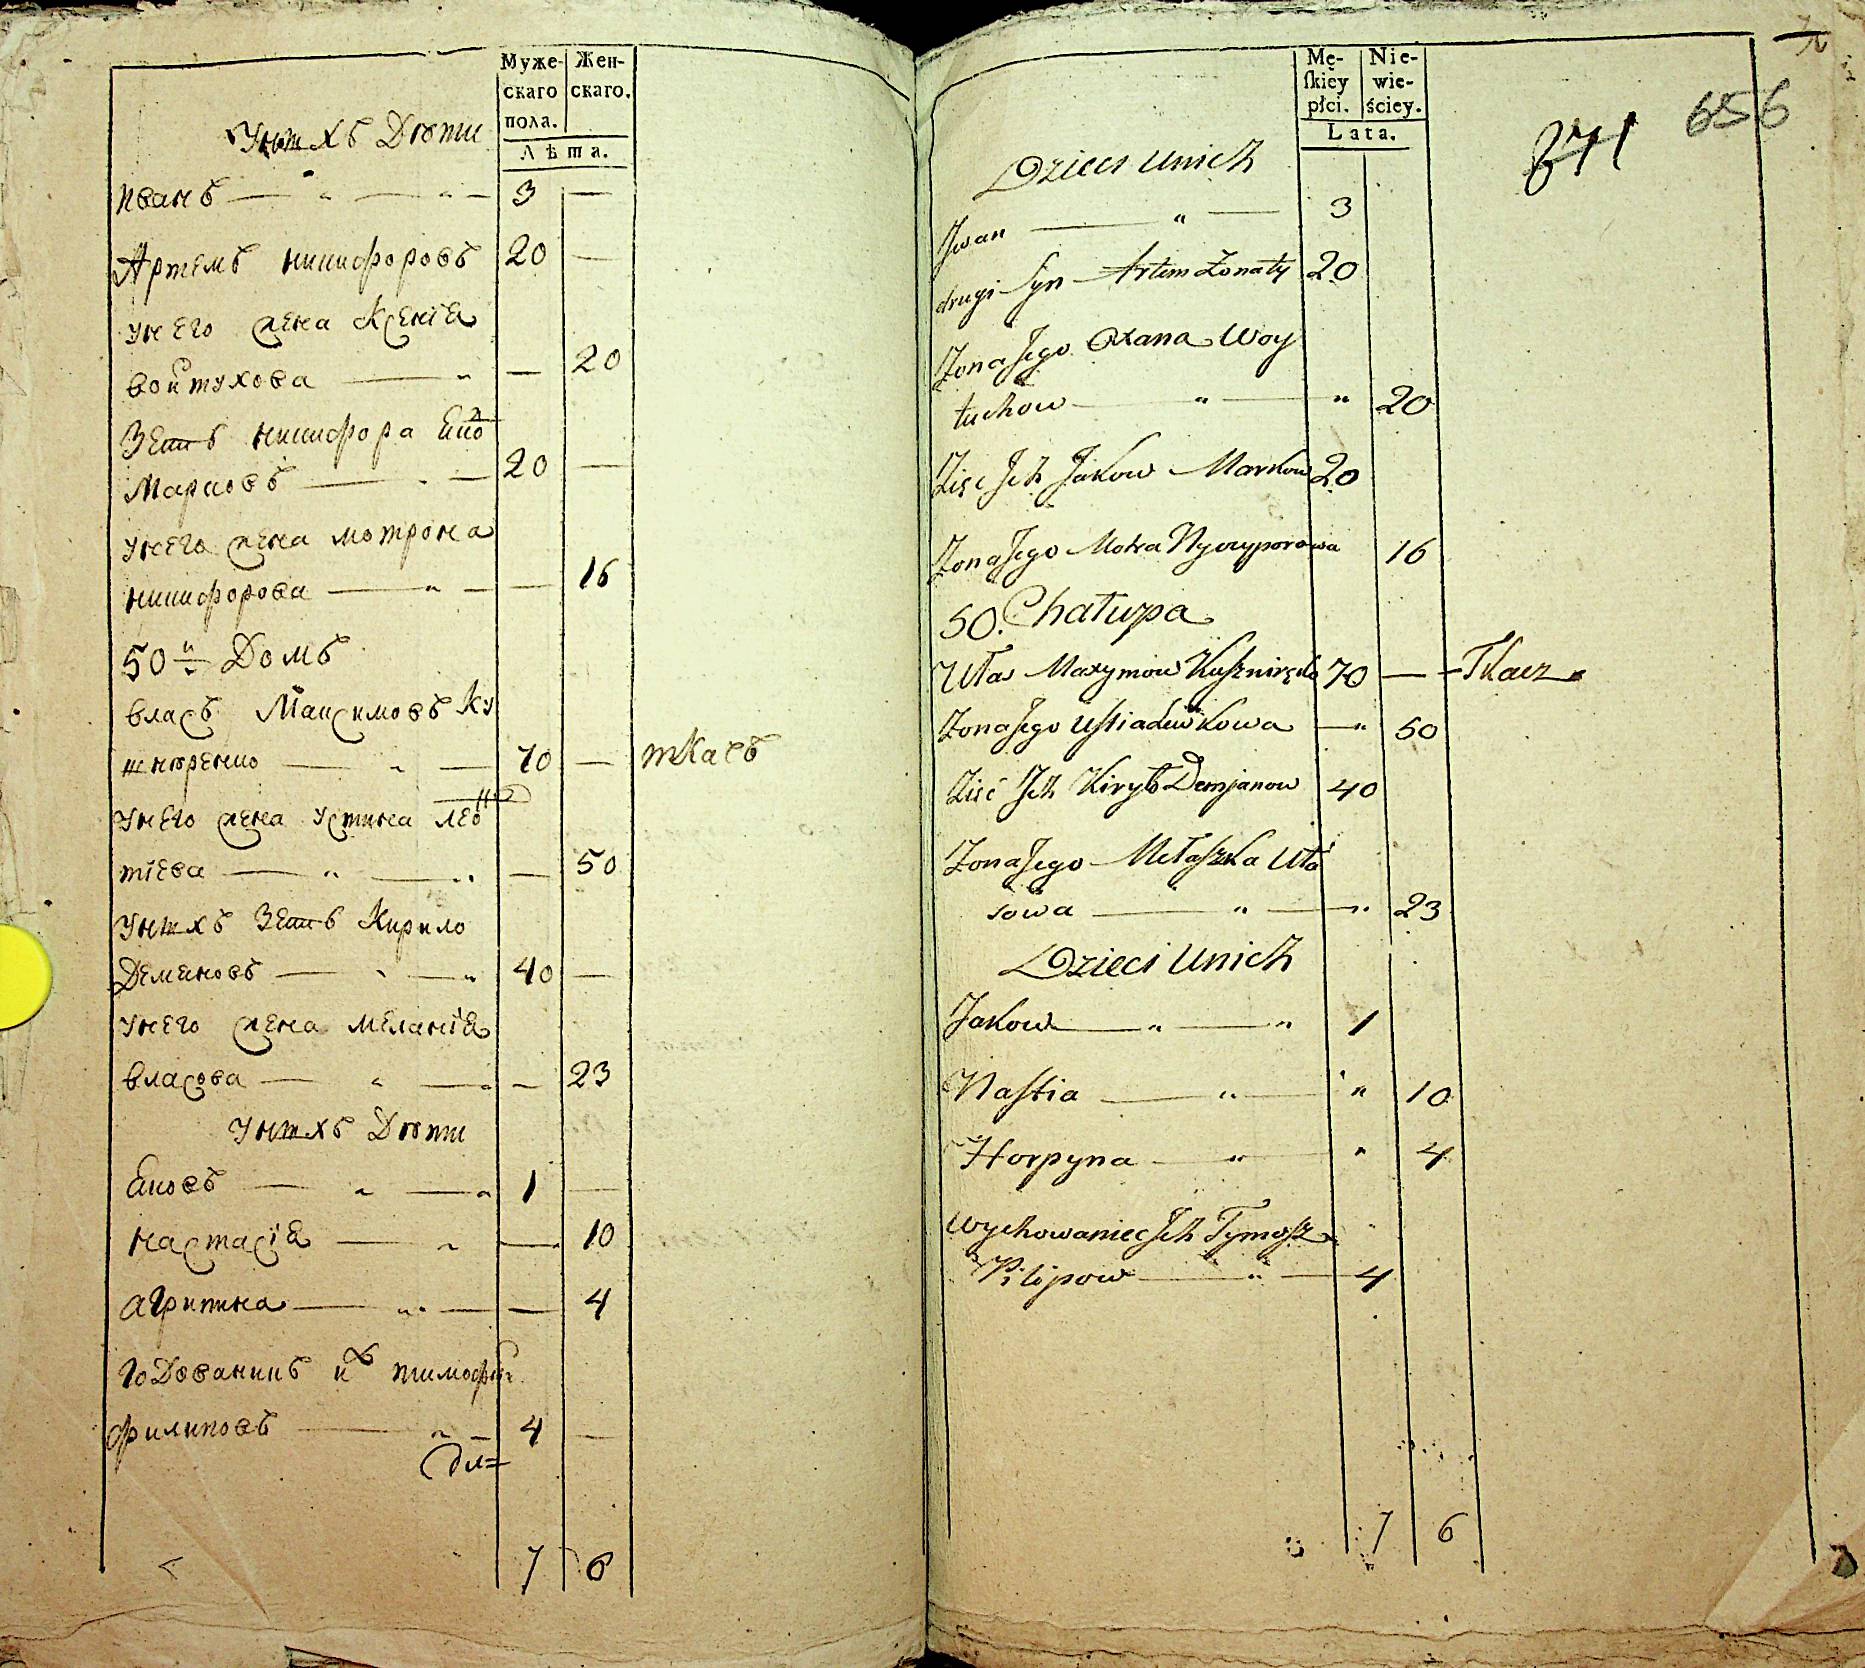 Муже-
скаго
пола.
Жен-
скаго.
Лѣта.
Унихъ Дѣти
Иванъ — „ — „ — 3 —
Артемъ никифоровъ 20 —
унего жена Ксенія
войтухова — „ — 20
Зеть никифора Яко
Марковъ — „ — 20 —
унего жена мотрона
никифорова — „ — — 16
50й Домъ
власъ Максимовъ Ку
шнѣренко — „ — 70 — ткачь
унего жена устина лео
тіева — „ — „ — 50
унихъ Зеть Кирило
Демяновъ — „ — „ 40 —
унего жена меланія
власова — „ — „ — 23
унихъ Дѣти
Яковъ — „ — „ 1 —
настасія — „ — 10
агрипина — „ — — 4
годованикъ ихъ тимофѣй
филиповъ — „ — 4 —
7 6
Mę-
ſkiéy
płci.
Nie-
wie-
ściey.
Lata.
656
671
Dzieci Unich
Jwan — „ — 3
drugi Syn Artem Żonaty 20
Żona Jego Oxana Woy
tuchow — „ — „ 20
Zięć Jch Jakow Markow 20
Żona Jego Motra Nyczyporowa 16
50. Chałupa
Ułas Maxymow Kuſznirenko 70 — Tkacz
Żona Jego Uſtia Lewkowa — „ 50
Zięć Jch Kiryło Demjanow 40
Żona Jego Mełaſzka Uła
sowa — „ — „ 23
Dzieci Unich
Jakow — „ — „ 1
Naſtia — „ — „ 10
Horpyna — „ — „ 4
Wychowaniec Jch Tymoſz
Pilipow — „ — 4
7 6